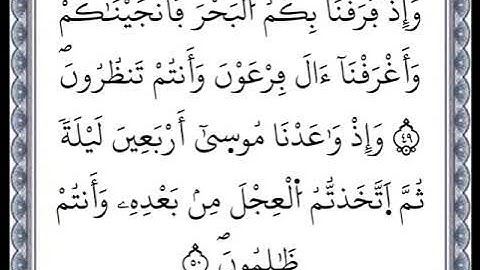 وَإِذْ فَرَقْنَا بِكُمُ اُ۬لْبَحْرَ فَأَنجَيْنَٰكُمْ
وَأَغْرَقْنَآ ءَالَ فِرْعَوْنَ وَأَنتُمْ تَنظُرُونَۖ
٤٩ وَإِذْ وَٰعَدْنَا مُوس۪ىٰٓ أَرْبَعِينَ لَيْلَةٗ
ثُمَّ اَ۪تَّخَذتُّمُ اُ۬لْعِجْلَ مِنۢ بَعْدِهِۦ وَأَنتُمْ
ظَٰلِمُونَۖ ٥٠